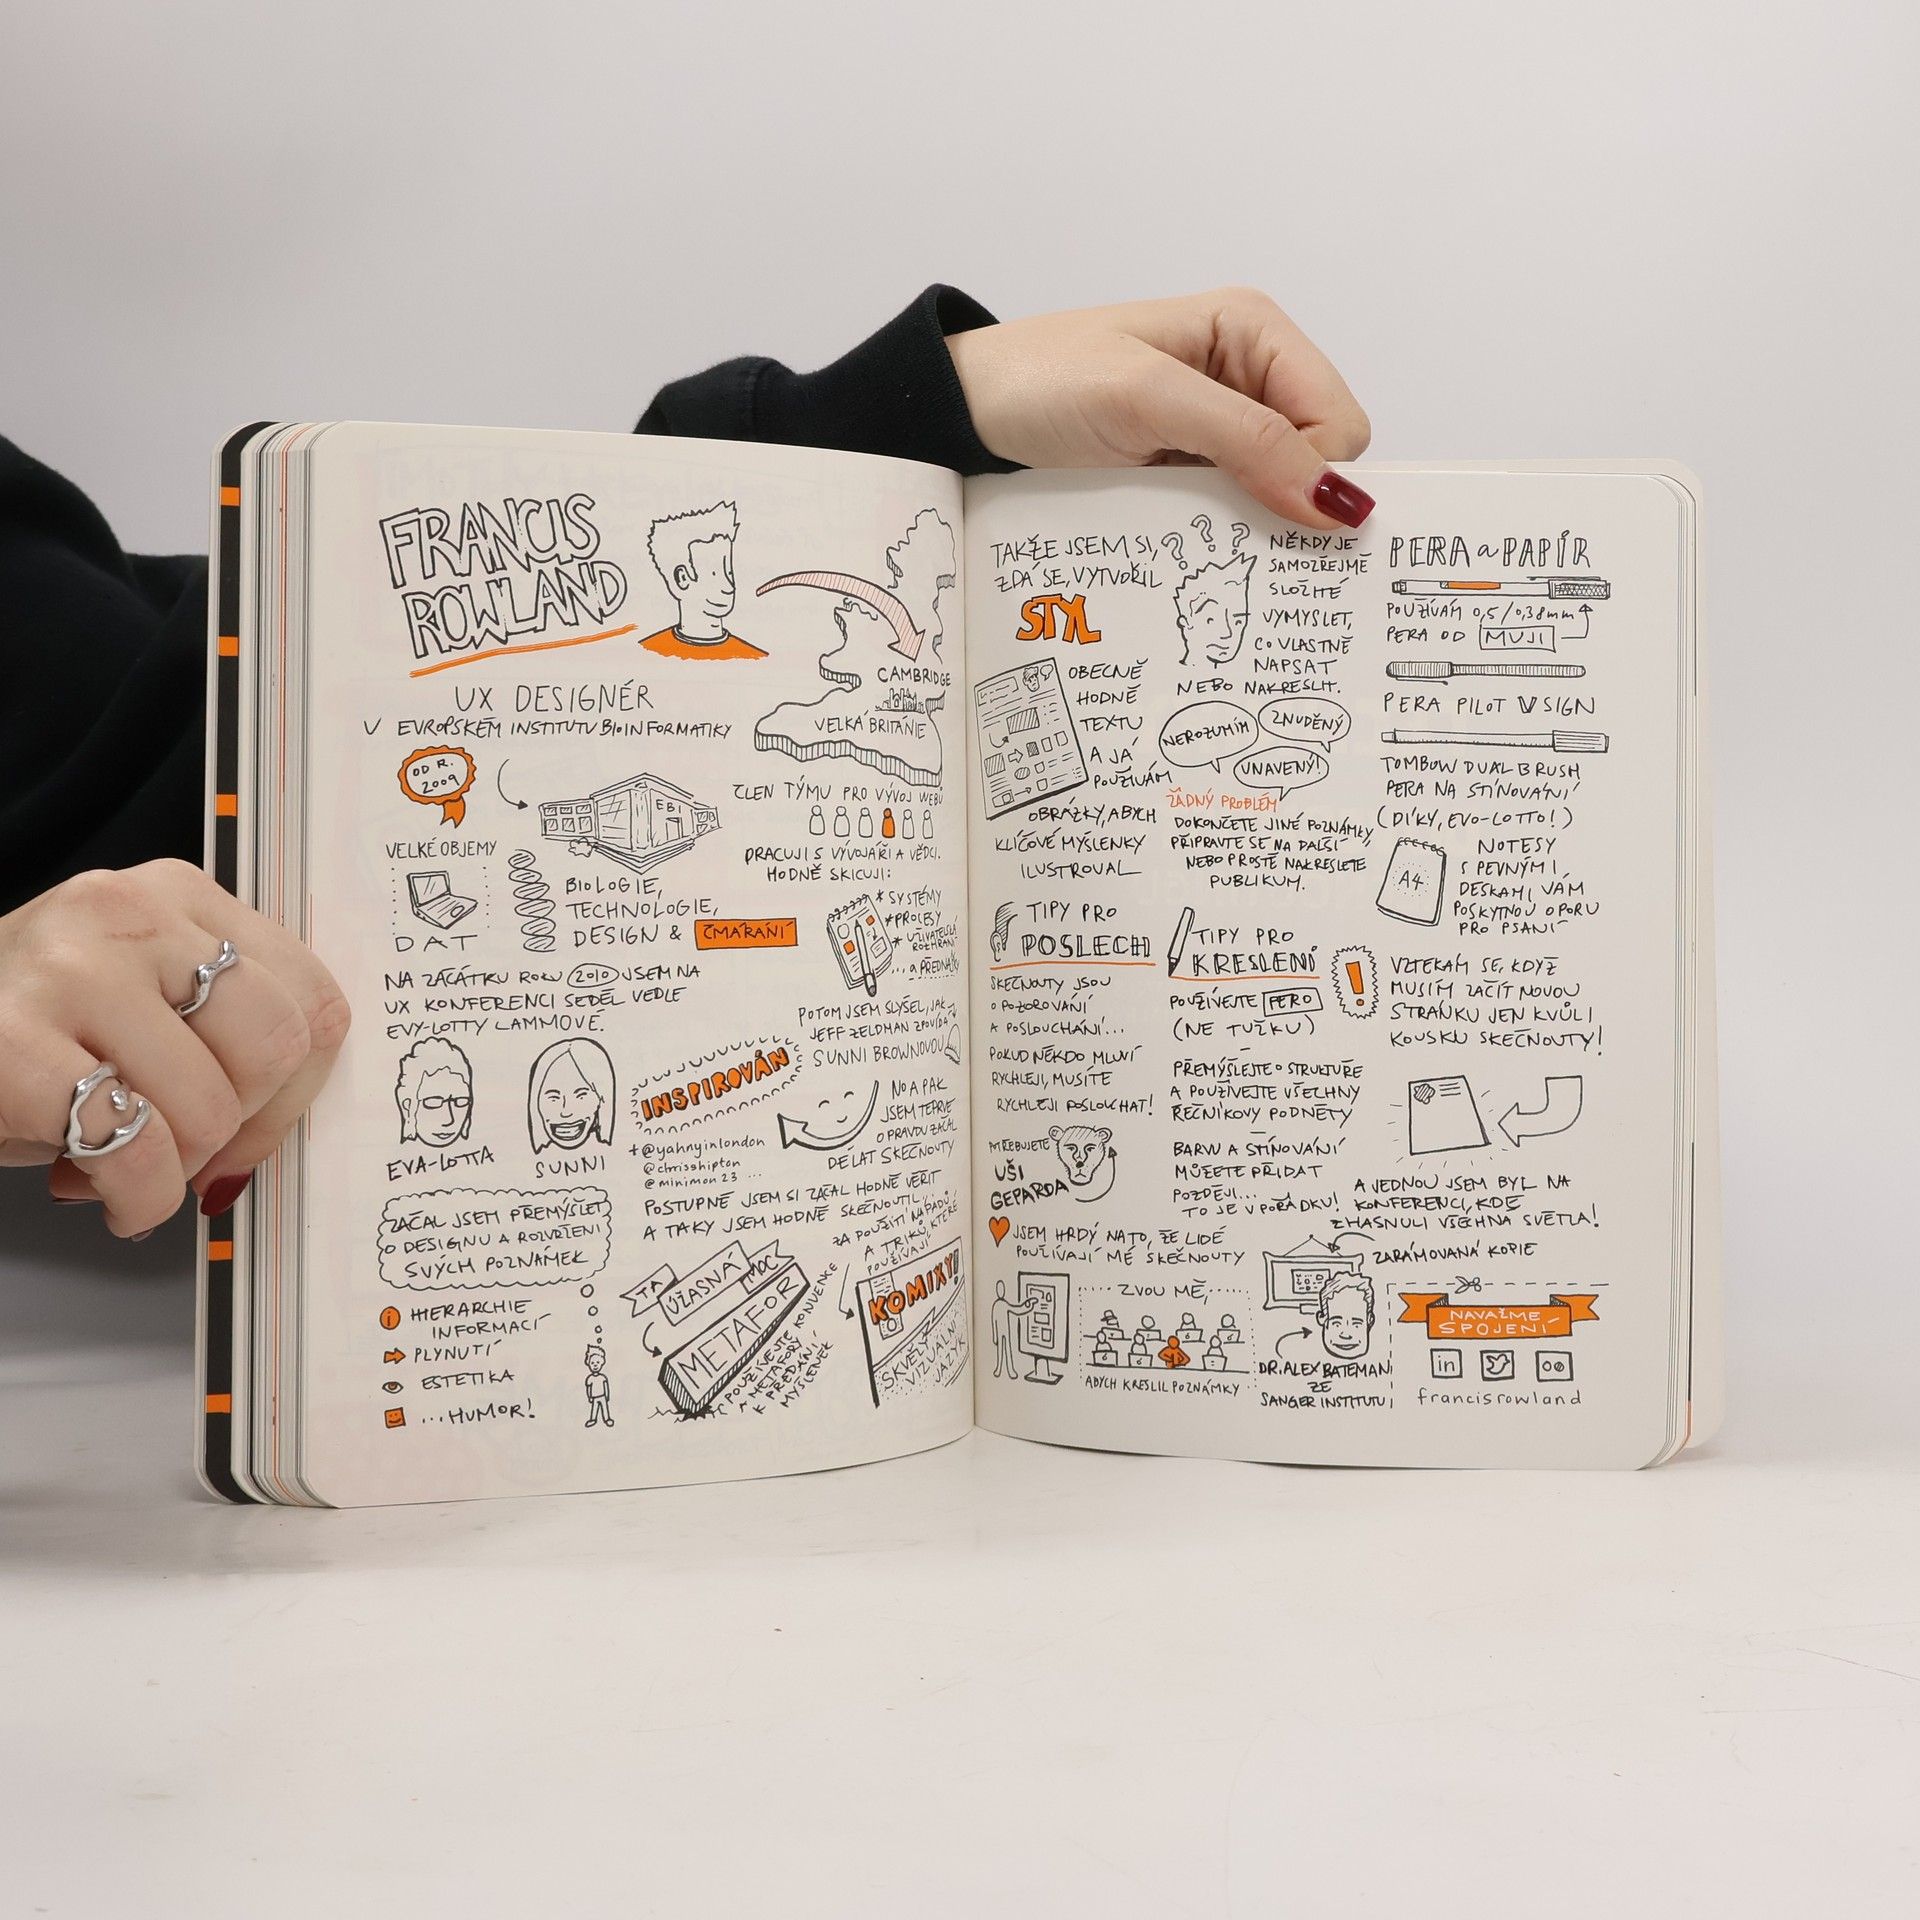 FRANCIS
ROWLAND
UX DESIGNÉR
V EVROPSKÉM INSTITUTU BIOINFORMATIKY
OD R.
2009
EBI
VELKÉ OBJEMY
DAT
BIOLOGIE,
TECHNOLOGIE,
DESIGN & ČMÁRÁNÍ
CAMBRIDGE
VELKÁ BRITÁNIE
ČLEN TÝMU PRO VÝVOJ WEBŮ
PRACUJI S VÝVOJÁŘI A VĚDCI.
HODNĚ SKICUJI:
* SYSTÉMY
* PROCESY
* UŽIVATELSKÁ
ROZHRANÍ
... A PŘEDNÁŠKY
NA ZAČÁTKU ROKU 2010 JSEM NA
UX KONFERENCI SEDĚL VEDLE
EVY-LOTTY LAMMOVÉ.
EVA-LOTTA
SUNNI
POTOM JSEM SLYŠEL, JAK
JEFF ZELDMAN ZPOVÍDÁ
SUNNI BROWNOVOU
INSPIROVÁN
+ @yahnyinlondon
@chrisshipton
@minimon23 ...
NO A PAK
JSEM TEPRVE
OPRAVDU ZAČAL
DĚLAT SKEČNOUTY
POSTUPNĚ JSEM SI ZAČAL HODNĚ VĚŘIT
A TAKY JSEM HODNĚ SKEČNOUTIL,
ZAČAL JSEM PŘEMÝŠLET
O DESIGNU A ROZVRŽENÍ
SVÝCH POZNÁMEK
HIERARCHIE
INFORMACÍ
PLYNUTÍ
ESTETIKA
...HUMOR!
TA
ÚŽASNÁ
MOC
METAFOR
POUŽÍVEJTE KONVENCE
A METAFORY
K PŘEDÁNÍ
MYŠLENEK
ZA POUŽITÍ NÁPADŮ
A TRIKŮ, KTERÉ
POUŽÍVAJÍ
KOMIXY!
SKVĚLÝ
VIZUÁLNÍ
JAZYK
TAKŽE JSEM SI,
ZDÁ SE, VYTVOŘIL
STYL
OBECNĚ
HODNĚ
TEXTU
A JÁ
POUŽÍVÁM
OBRÁZKY, ABYCH
KLÍČOVÉ MYŠLENKY
ILUSTROVAL
? ? ?
NĚKDY JE
SAMOZŘEJMĚ
SLOŽITÉ
VYMYSLET,
CO VLASTNĚ
NAPSAT
NEBO NAKRESLIT.
NEROZUMÍM
ZNUDĚNÝ
UNAVENÝ!
ŽÁDNÝ PROBLÉM
DOKONČETE JINÉ POZNÁMKY,
PŘIPRAVTE SE NA DALŠÍ
NEBO PROSTĚ NAKRESLETE
PUBLIKUM.
TIPY PRO
POSLECH
SKEČNOUTY JSOU
O POZOROVÁNÍ
A POSLOUCHÁNÍ...
POKUD NĚKDO MLUVÍ
RYCHLEJI, MUSÍTE
RYCHLEJI POSLOUCHAT!
POTŘEBUJETE
UŠI
GEPARDA
TIPY PRO
KRESLENÍ
POUŽÍVEJTE PERO
(NE TUŽKU)
PŘEMÝŠLEJTE O STRUKTUŘE
A POUŽÍVEJTE VŠECHNY
ŘEČNÍKOVY PODNĚTY
BARVU A STÍNOVÁNÍ
MŮŽETE PŘIDAT
POZDĚJI...
TO JE V POŘÁDKU!
JSEM HRDÝ NA TO, ŽE LIDÉ
POUŽÍVAJÍ MÉ SKEČNOUTY
ZVOU MĚ,
ABYCH KRESLIL POZNÁMKY
ZARÁMOVANÁ KOPIE
DR. ALEX BATEMAN
ZE
SANGER INSTITUTU
PERA a PAPÍR
POUŽÍVÁM 0,5/0,38mm
PERA OD MUJI
PERA PILOT V SIGN
TOMBOW DUAL BRUSH
PERA NA STÍNOVÁNÍ
(DÍKY, EVO-LOTTO!)
A4
NOTESY
S PEVNÝMI
DESKAMI VÁM
POSKYTNOU OPORU
PRO PSANÍ
!
VZTEKÁM SE, KDYŽ
MUSÍM ZAČÍT NOVOU
STRÁNKU JEN KVŮLI
KOUSKU SKEČNOUTY!
A JEDNOU JSEM BYL NA
KONFERENCI, KDE
ZHASNULI VŠECHNA SVĚTLA!
NAVAŽME
SPOJENÍ
in
francisrowland